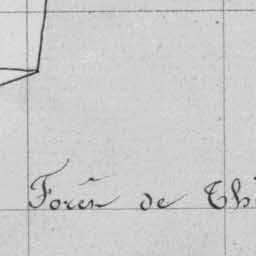 Forêt de Th